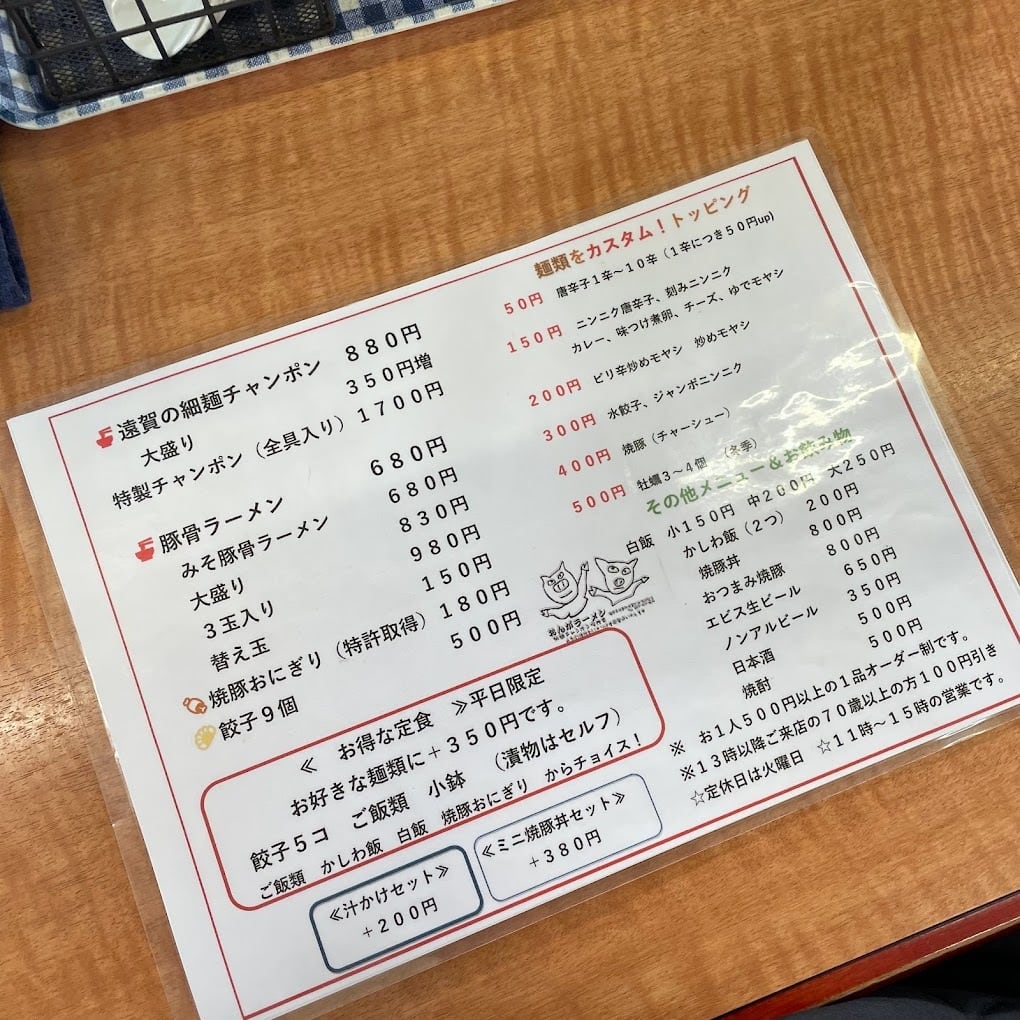 遠賀の細麺チャンポン 880円
大盛り 350円増
特製チャンポン（全具入り）1700円
豚骨ラーメン 680円
みそ豚骨ラーメン 680円
大盛り 830円
3玉入り 980円
替え玉 150円
焼豚おにぎり（特許取得）180円
餃子9個 500円
≪ お得な定食 ≫平日限定
お好きな麺類に＋350円です。
餃子5コ ご飯類 小鉢 （漬物はセルフ）
ご飯類 かしわ飯 白飯 焼豚おにぎり からチョイス！
≪汁かけセット≫
＋200円
≪ミニ焼豚丼セット≫
＋380円
麺類をカスタム！トッピング
50円 唐辛子1辛～10辛（1辛につき50円up)
150円 ニンニク唐辛子、刻みニンニク
カレー、味つけ煮卵、チーズ、ゆでモヤシ
200円 ピリ辛炒めモヤシ 炒めモヤシ
300円 水餃子、ジャンボニンニク
400円 焼豚（チャーシュー）
500円 牡蠣3～4個 （冬季）
その他メニュー＆お飲み物
白飯 小150円 中200円 大250円
かしわ飯（2つ） 200円
焼豚丼 800円
おつまみ焼豚 800円
エビス生ビール 650円
ノンアルビール 350円
日本酒 500円
焼酎 500円
おんがラーメン
※ お1人500円以上の1品オーダー制です。
※13時以降ご来店の70歳以上の方100円引き
☆定休日は火曜日 ☆11時～15時の営業です。